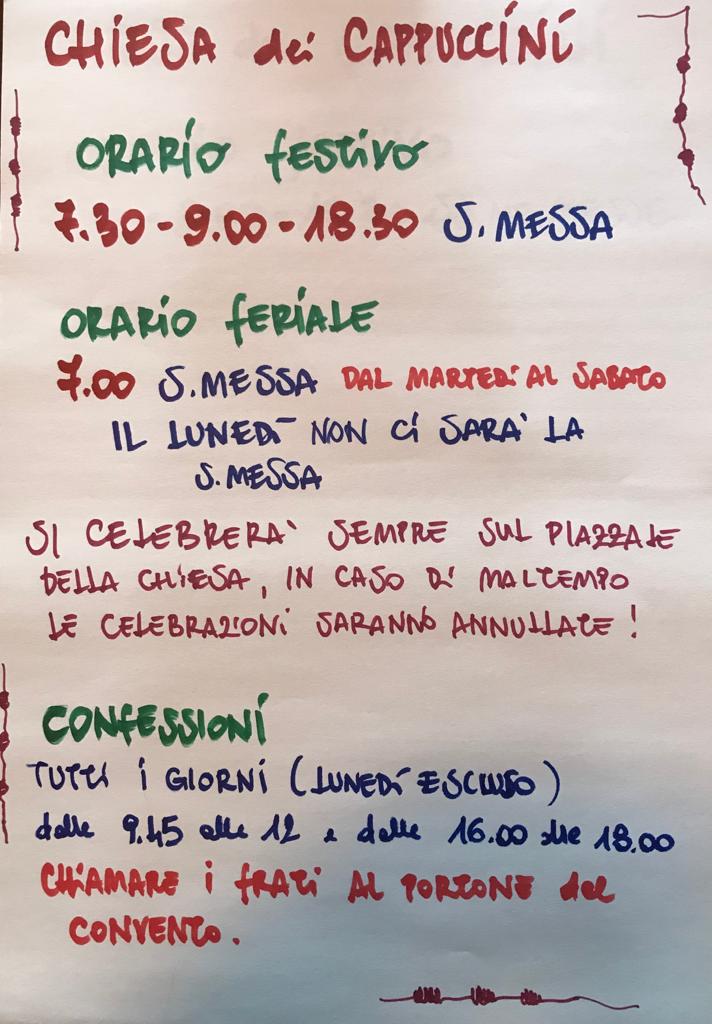 CHIESA dei CAPPUCCINI
ORARIO festivo
7.30 - 9.00 - 18.30 S. MESSA
ORARIO feRIALE
7.00 S. MESSA DAL MARTEDÌ AL SABATO
IL LUNEDÌ NON CI SARA' LA
S. MESSA
SI CELEBRERA' SEMPRE SUL PIAZZALE
DELLA CHIESA, IN CASO DI MALTEMPO
LE CELEBRAZIONI SARANNO ANNULLATE!
CONFESSIONI
TUTTI I GIORNI (LUNEDÌ ESCLUSO)
dalle 9.45 alle 12 e dalle 16.00 alle 18.00
CHIAMARE I FRATI AL PORTONE del
CONVENTO.